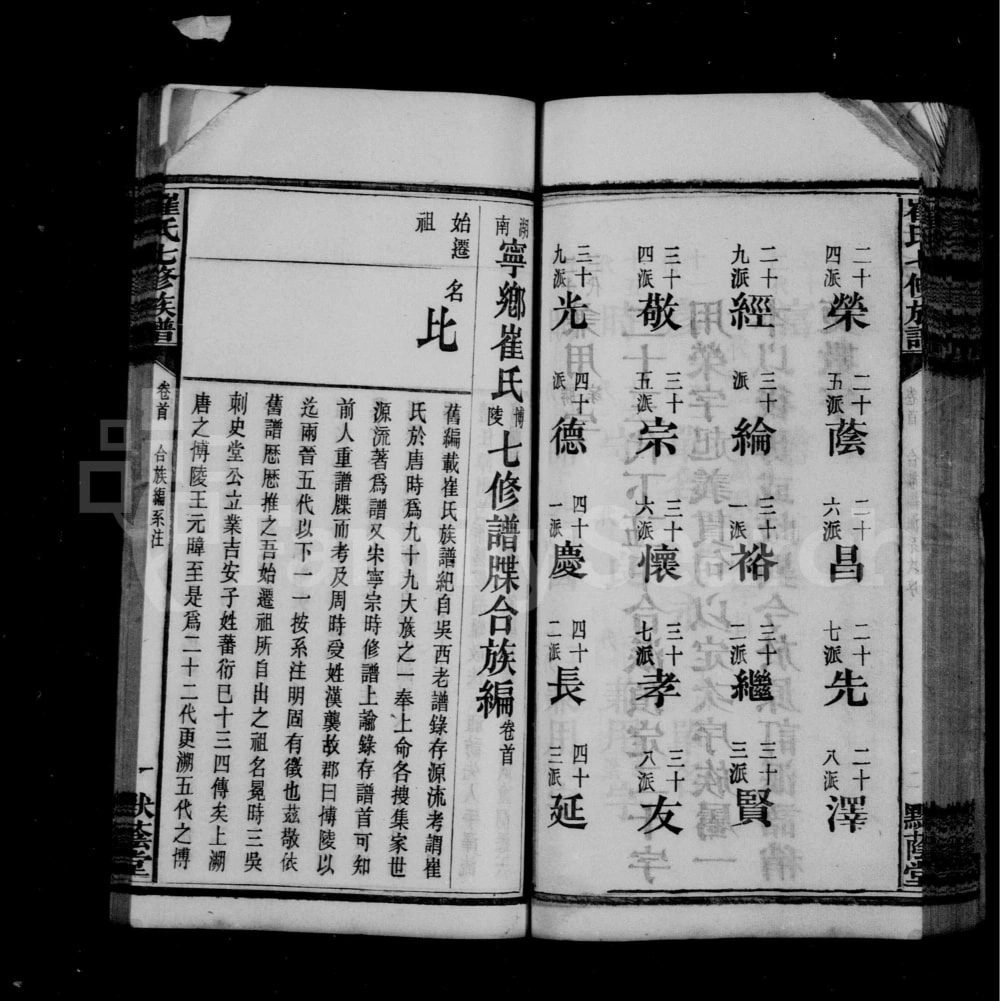 崔氏七修族譜
卷首
默蔭堂
二十四派榮 二十五派蔭 二十六派昌 二十七派先 二十八派澤
二十九派經 三十派綸 三十一派裕 三十二派繼 三十三派賢
三十四派敬 三十五派宗 三十六派懷 三十七派孝 三十八派友
三十九派光 四十派德 四十一派慶 四十二派長 四十三派延
湖南寧鄉崔氏博陵七修譜牒合族編卷首
始遷祖
名比
舊編載崔氏族譜紀自吳西老譜錄存源流考謂崔
氏於唐時爲九十九大族之一奉上命各搜集家世
源流著爲譜又宋寧宗時修譜上諭錄存譜首可知
前人重譜牒而考及周時受姓漢襲故郡曰博陵以
迄兩晉五代以下一一按系注明固有徵也茲敬依
舊譜歷歷推之吾始遷祖所自出之祖名冕時三吳
刺史堂公立業吉安子姓蕃衍已十三四傳矣上溯
唐之博陵王元暐至是爲二十二代更溯五代之博
崔氏七修族譜
卷首 合族編系注
一
默蔭堂